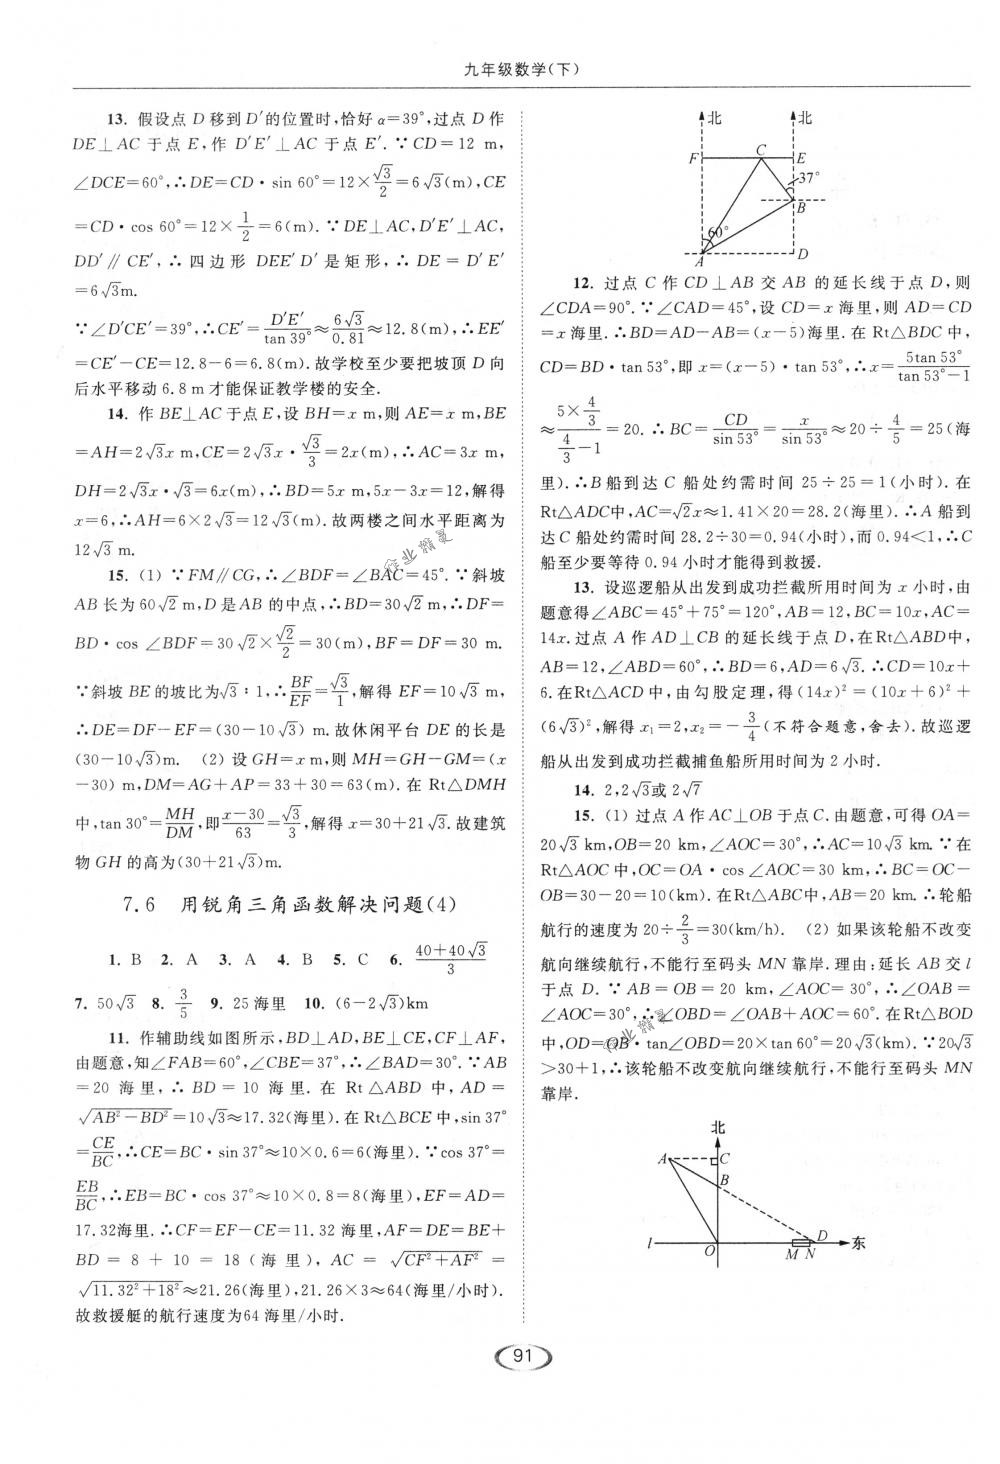 九年级数学(下)
13. 假设点 D 移到 D′的位置时,恰好 α=39°,过点 D 作
DE⊥AC 于点 E,作 D′E′⊥AC 于点 E′. ∵CD=12 m,
∠DCE=60°,∴DE=CD·sin 60°=12×√3/2=6√3(m),CE
=CD·cos 60°=12×1/2=6(m). ∵DE⊥AC,D′E′⊥AC,
DD′∥CE′,∴四边形 DEE′D′是矩形,∴DE=D′E′
=6√3m.
∵∠D′CE′=39°,∴CE′=D′E′/tan 39°≈6√3/0.81≈12.8(m),∴EE′
=CE′-CE=12.8-6=6.8(m). 故学校至少要把坡顶 D 向
后水平移动 6.8 m 才能保证教学楼的安全.
14. 作 BE⊥AC 于点 E,设 BH=x m,则 AE=x m,BE
=AH=2√3x m,CE=2√3x·√3/3=2x(m),∴AC=3x m,
DH=2√3x·√3=6x(m),∴BD=5x m,5x-3x=12,解得
x=6,∴AH=6×2√3=12√3(m). 故两楼之间水平距离为
12√3 m.
15. (1) ∵FM∥CG,∴∠BDF=∠BAC=45°. ∵斜坡
AB 长为 60√2 m,D 是 AB 的中点,∴BD=30√2 m,∴DF=
BD·cos ∠BDF=30√2×√2/2=30(m),BF=DF=30 m.
∵斜坡 BE 的坡比为√3∶1,∴BF/EF=√3/1,解得 EF=10√3 m,
∴DE=DF-EF=(30-10√3) m. 故休闲平台 DE 的长是
(30-10√3)m. (2) 设 GH=x m,则 MH=GH-GM=(x
-30) m,DM=AG+AP=33+30=63(m). 在 Rt△DMH
中,tan 30°=MH/DM,即x-30/63=√3/3,解得 x=30+21√3. 故建筑
物 GH 的高为(30+21√3)m.
7.6 用锐角三角函数解决问题(4)
1. B 2. A 3. A 4. B 5. C 6. 40+40√3/3
7. 50√3 8. 3/5 9. 25 海里 10. (6-2√3)km
11. 作辅助线如图所示,BD⊥AD,BE⊥CE,CF⊥AF,
由题意,知∠FAB=60°,∠CBE=37°,∴∠BAD=30°. ∵AB
=20 海里,∴BD=10 海里. 在 Rt△ABD 中,AD=
√AB²-BD²=10√3≈17.32(海里). 在 Rt△BCE 中,sin 37°
=CE/BC,∴CE=BC·sin 37°≈10×0.6=6(海里). ∵cos 37°=
EB/BC,∴EB=BC·cos 37°≈10×0.8=8(海里),EF=AD=
17.32海里. ∴CF=EF-CE=11.32 海里,AF=DE=BE+
BD=8+10=18(海里),AC=√CF²+AF²=
√11.32²+18²≈21.26(海里),21.26×3≈64(海里/小时).
故救援艇的航行速度为64 海里/小时.
北 北
F C E
37°
B
60°
A D
12. 过点 C 作 CD⊥AB 交 AB 的延长线于点 D,则
∠CDA=90°. ∵∠CAD=45°,设 CD=x 海里,则 AD=CD
=x 海里. ∴BD=AD-AB=(x-5)海里. 在 Rt△BDC 中,
CD=BD·tan 53°,即 x=(x-5)·tan 53°,∴x=5tan 53°/tan 53°-1
≈5×4/3/4/3-1=20. ∴BC=CD/sin 53°=x/sin 53°≈20÷4/5=25(海
里). ∴B 船到达 C 船处约需时间 25÷25=1(小时). 在
Rt△ADC中,AC=√2x≈1.41×20=28.2(海里). ∴A 船到
达 C 船处约需时间 28.2÷30=0.94(小时),而 0.94<1,∴C
船至少要等待 0.94 小时才能得到救援.
13. 设巡逻船从出发到成功拦截所用时间为 x 小时,由
题意得∠ABC=45°+75°=120°,AB=12,BC=10x,AC=
14x. 过点 A 作 AD⊥CB 的延长线于点 D,在 Rt△ABD中,
AB=12,∠ABD=60°,∴BD=6,AD=6√3. ∴CD=10x+
6. 在Rt△ACD 中,由勾股定理,得(14x)²=(10x+6)²+
(6√3)²,解得 x₁=2,x₂=-3/4(不符合题意,舍去). 故巡逻
船从出发到成功拦截捕鱼船所用时间为 2 小时.
14. 2,2√3或 2√7
15. (1) 过点 A 作 AC⊥OB 于点 C. 由题意,可得 OA=
20√3 km,OB=20 km,∠AOC=30°,∴AC=10√3 km. ∵在
Rt△AOC 中,OC=OA·cos∠AOC=30 km,∴BC=OC-
OB=30-20=10(km). 在Rt△ABC中,AB=20 km. ∴轮船
航行的速度为 20÷2/3=30(km/h). (2) 如果该轮船不改变
航向继续航行,不能行至码头 MN 靠岸. 理由:延长 AB 交 l
于点 D. ∵AB=OB=20 km,∠AOC=30°,∴∠OAB=
∠AOC=30°,∴∠OBD=∠OAB+∠AOC=60°. 在 Rt△BOD
中,OD=OB·tan∠OBD=20×tan 60°=20√3(km). ∵20√3
>30+1,∴该轮船不改变航向继续航行,不能行至码头 MN
靠岸.
北
A C
B
D
l O M N 东
91
作业精灵
作业精灵